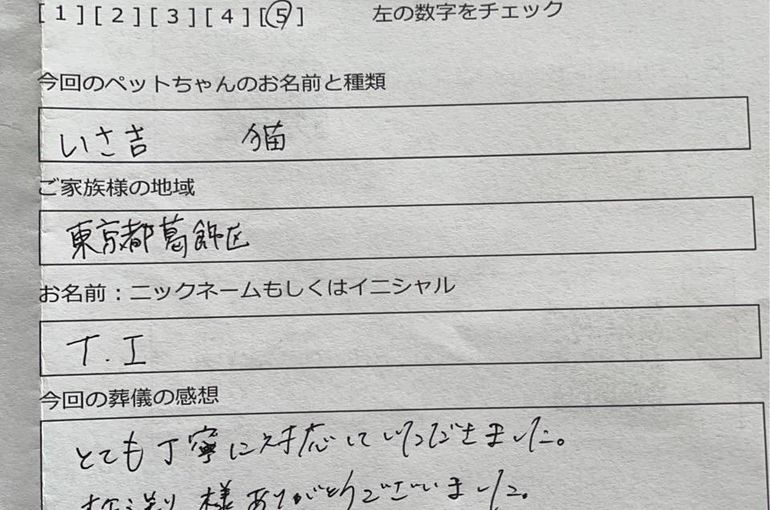 [ 1 ] [ 2 ] [ 3 ] [ 4 ] [ 5 ] 左の数字をチェック
今回のペットちゃんのお名前と種類
いさ吉 猫
ご家族様の地域
東京都葛飾区
お名前：ニックネームもしくはイニシャル
T.I
今回の葬儀の感想
とても丁寧に対応していただきました。
様ありがとうございました。